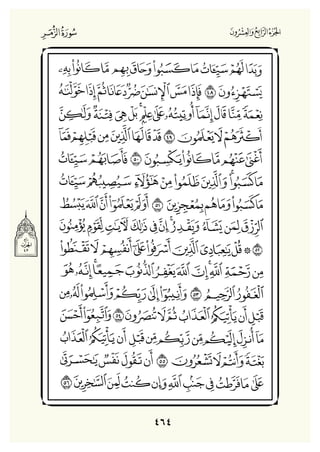 الجُزْءُ الرَّابِعُ وَالعِشْرُونَ
سُورَةُ الزُّمَرِ
وَبَدَا لَهُمْ سَيِّـَٔاتُ مَا كَسَبُوا۟ وَحَاقَ بِهِم مَّا كَانُوا۟ بِهِۦ
يَسْتَهْزِءُونَ ٤٨ فَإِذَا مَسَّ ٱلْإِنسَٰنَ ضُرٌّ دَعَانَا ثُمَّ إِذَا خَوَّلْنَٰهُ
نِعْمَةً مِّنَّا قَالَ إِنَّمَآ أُوتِيتُهُۥ عَلَىٰ عِلْمٍۭ ۚ بَلْ هِىَ فِتْنَةٌ وَلَٰكِنَّ
أَكْثَرَهُمْ لَا يَعْلَمُونَ ٤٩ قَدْ قَالَهَا ٱلَّذِينَ مِن قَبْلِهِمْ فَمَآ
أَغْنَىٰ عَنْهُم مَّا كَانُوا۟ يَكْسِبُونَ ٥٠ فَأَصَابَهُمْ سَيِّـَٔاتُ
مَا كَسَبُوا۟ ۚ وَٱلَّذِينَ ظَلَمُوا۟ مِنْ هَٰٓؤُلَآءِ سَيُصِيبُهُمْ سَيِّـَٔاتُ
مَا كَسَبُوا۟ وَمَا هُم بِمُعْجِزِينَ ٥١ أَوَلَمْ يَعْلَمُوٓا۟ أَنَّ ٱللَّهَ يَبْسُطُ
ٱلرِّزْقَ لِمَن يَشَآءُ وَيَقْدِرُ ۚ إِنَّ فِى ذَٰلِكَ لَءَايَٰتٍ لِّقَوْمٍ يُؤْمِنُونَ
٥٢ ۞ قُلْ يَٰعِبَادِىَ ٱلَّذِينَ أَسْرَفُوا۟ عَلَىٰٓ أَنفُسِهِمْ لَا تَقْنَطُوا۟
مِن رَّحْمَةِ ٱللَّهِ ۚ إِنَّ ٱللَّهَ يَغْفِرُ ٱلذُّنُوبَ جَمِيعًا ۚ إِنَّهُۥ هُوَ
ٱلْغَفُورُ ٱلرَّحِيمُ ٥٣ وَأَنِيبُوٓا۟ إِلَىٰ رَبِّكُمْ وَأَسْلِمُوا۟ لَهُۥ مِن
قَبْلِ أَن يَأْتِيَكُمُ ٱلْعَذَابُ ثُمَّ لَا تُنصَرُونَ ٥٤ وَٱتَّبِعُوٓا۟ أَحْسَنَ
مَآ أُنزِلَ إِلَيْكُم مِّن رَّبِّكُم مِّن قَبْلِ أَن يَأْتِيَكُمُ ٱلْعَذَابُ
بَغْتَةً وَأَنتُمْ لَا تَشْعُرُونَ ٥٥ أَن تَقُولَ نَفْسٌ يَٰحَسْرَتَىٰ
عَلَىٰ مَا فَرَّطتُ فِى جَنۢبِ ٱللَّهِ وَإِن كُنتُ لَمِنَ ٱلسَّٰخِرِينَ ٥٦
٤٦٤